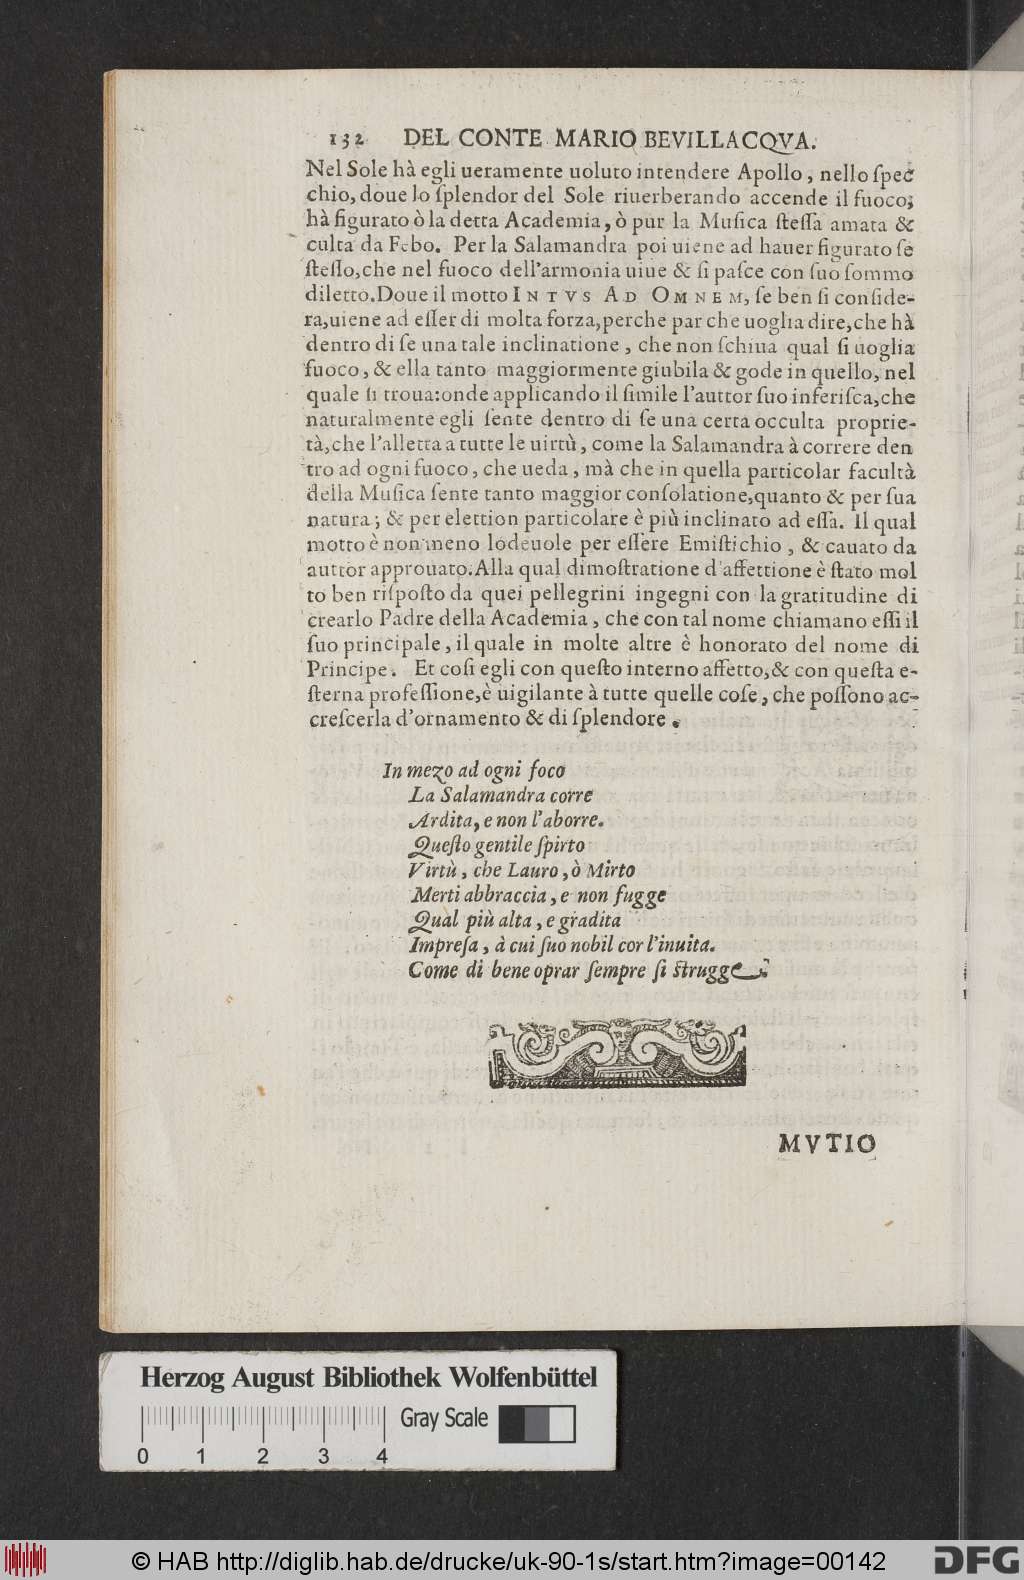 132 DEL CONTE MARIO BEVILLACQVA.
Nel Sole hà egli ueramente uoluto intendere Apollo, nello ſpec
chio, doue lo ſplendor del Sole riuerberando accende il fuoco;
hà figurato ò la detta Academia, ò pur la Muſica ſteſſa amata &
culta da Febo. Per la Salamandra poi uiene ad hauer figurato ſe
ſteſſo, che nel fuoco dell'armonia uiue & ſi paſce con ſuo ſommo
diletto. Doue il motto INTVS AD OMNEM, ſe ben ſi conſide-
ra, uiene ad eſſer di molta forza, perche par che uoglia dire, che hà
dentro di ſe una tale inclinatione, che non ſchiua qual ſi uoglia
fuoco, & ella tanto maggiormente giubila & gode in quello, nel
quale ſi troua: onde applicando il ſimile l'auttor ſuo inferiſca, che
naturalmente egli ſente dentro di ſe una certa occulta proprie-
tà, che l'alletta a tutte le uirtù, come la Salamandra à correre den
tro ad ogni fuoco, che ueda, mà che in quella particolar facultà
della Muſica ſente tanto maggior conſolatione, quanto & per ſua
natura; & per elettion particolare è più inclinato ad eſſa. Il qual
motto è non meno lodeuole per eſſere Emiſtichio, & cauato da
auttor approuato. Alla qual dimoſtratione d'affettione è ſtato mol
to ben riſpoſto da quei pellegrini ingegni con la gratitudine di
crearlo Padre della Academia, che con tal nome chiamano eſſi il
ſuo principale, il quale in molte altre è honorato del nome di
Principe. Et coſi egli con queſto interno affetto, & con queſta e-
ſterna profeſſione, è uigilante à tutte quelle coſe, che poſſono ac-
creſcerla d'ornamento & di ſplendore.
In mezo ad ogni foco
La Salamandra corre
Ardita, e non l'aborre.
Queſto gentile ſpirto
Virtù, che Lauro, ò Mirto
Merti abbraccia, e non fugge
Qual più alta, e gradita
Impreſa, à cui ſuo nobil cor l'inuita.
Come di bene oprar ſempre ſi ſtrugge.
MVTIO
Herzog August Bibliothek Wolfenbüttel
Gray Scale
0 1 2 3 4
© HAB http://diglib.hab.de/drucke/uk-90-1s/start.htm?image=00142
DFG